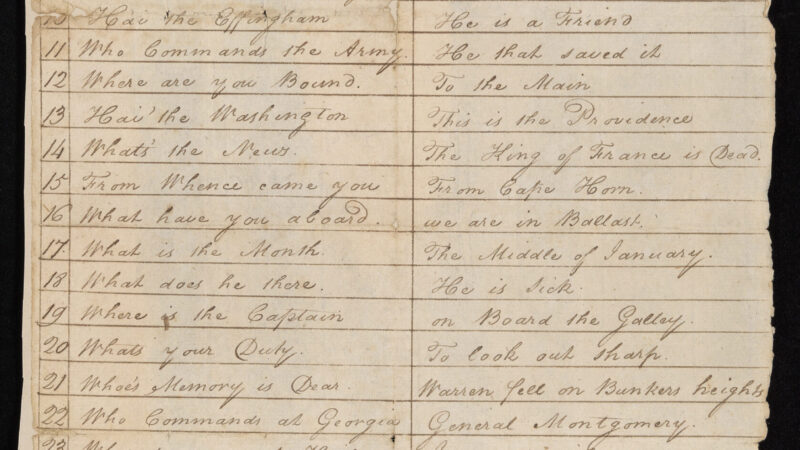 10 Hai' the Effingham He is a Friend
11 Who Commands the Army. He that saved it
12 Where are you Bound. To the Main
13 Hai' the Washington This is the Providence
14 Whats' the News. The King of France is Dead.
15 From Whence came you From Cape Horn.
16 What have you aboard. we are in Ballast.
17 What is the Month. The Middle of January.
18 What does he there. He is Sick.
19 Where is the Captain on Board the Galley.
20 Whats' your Duty. To look out sharp.
21 Whoe's Memory is Dear. Warren fell on Bunkers heights
22 Who Commands at Georgia General Montgomery.
23